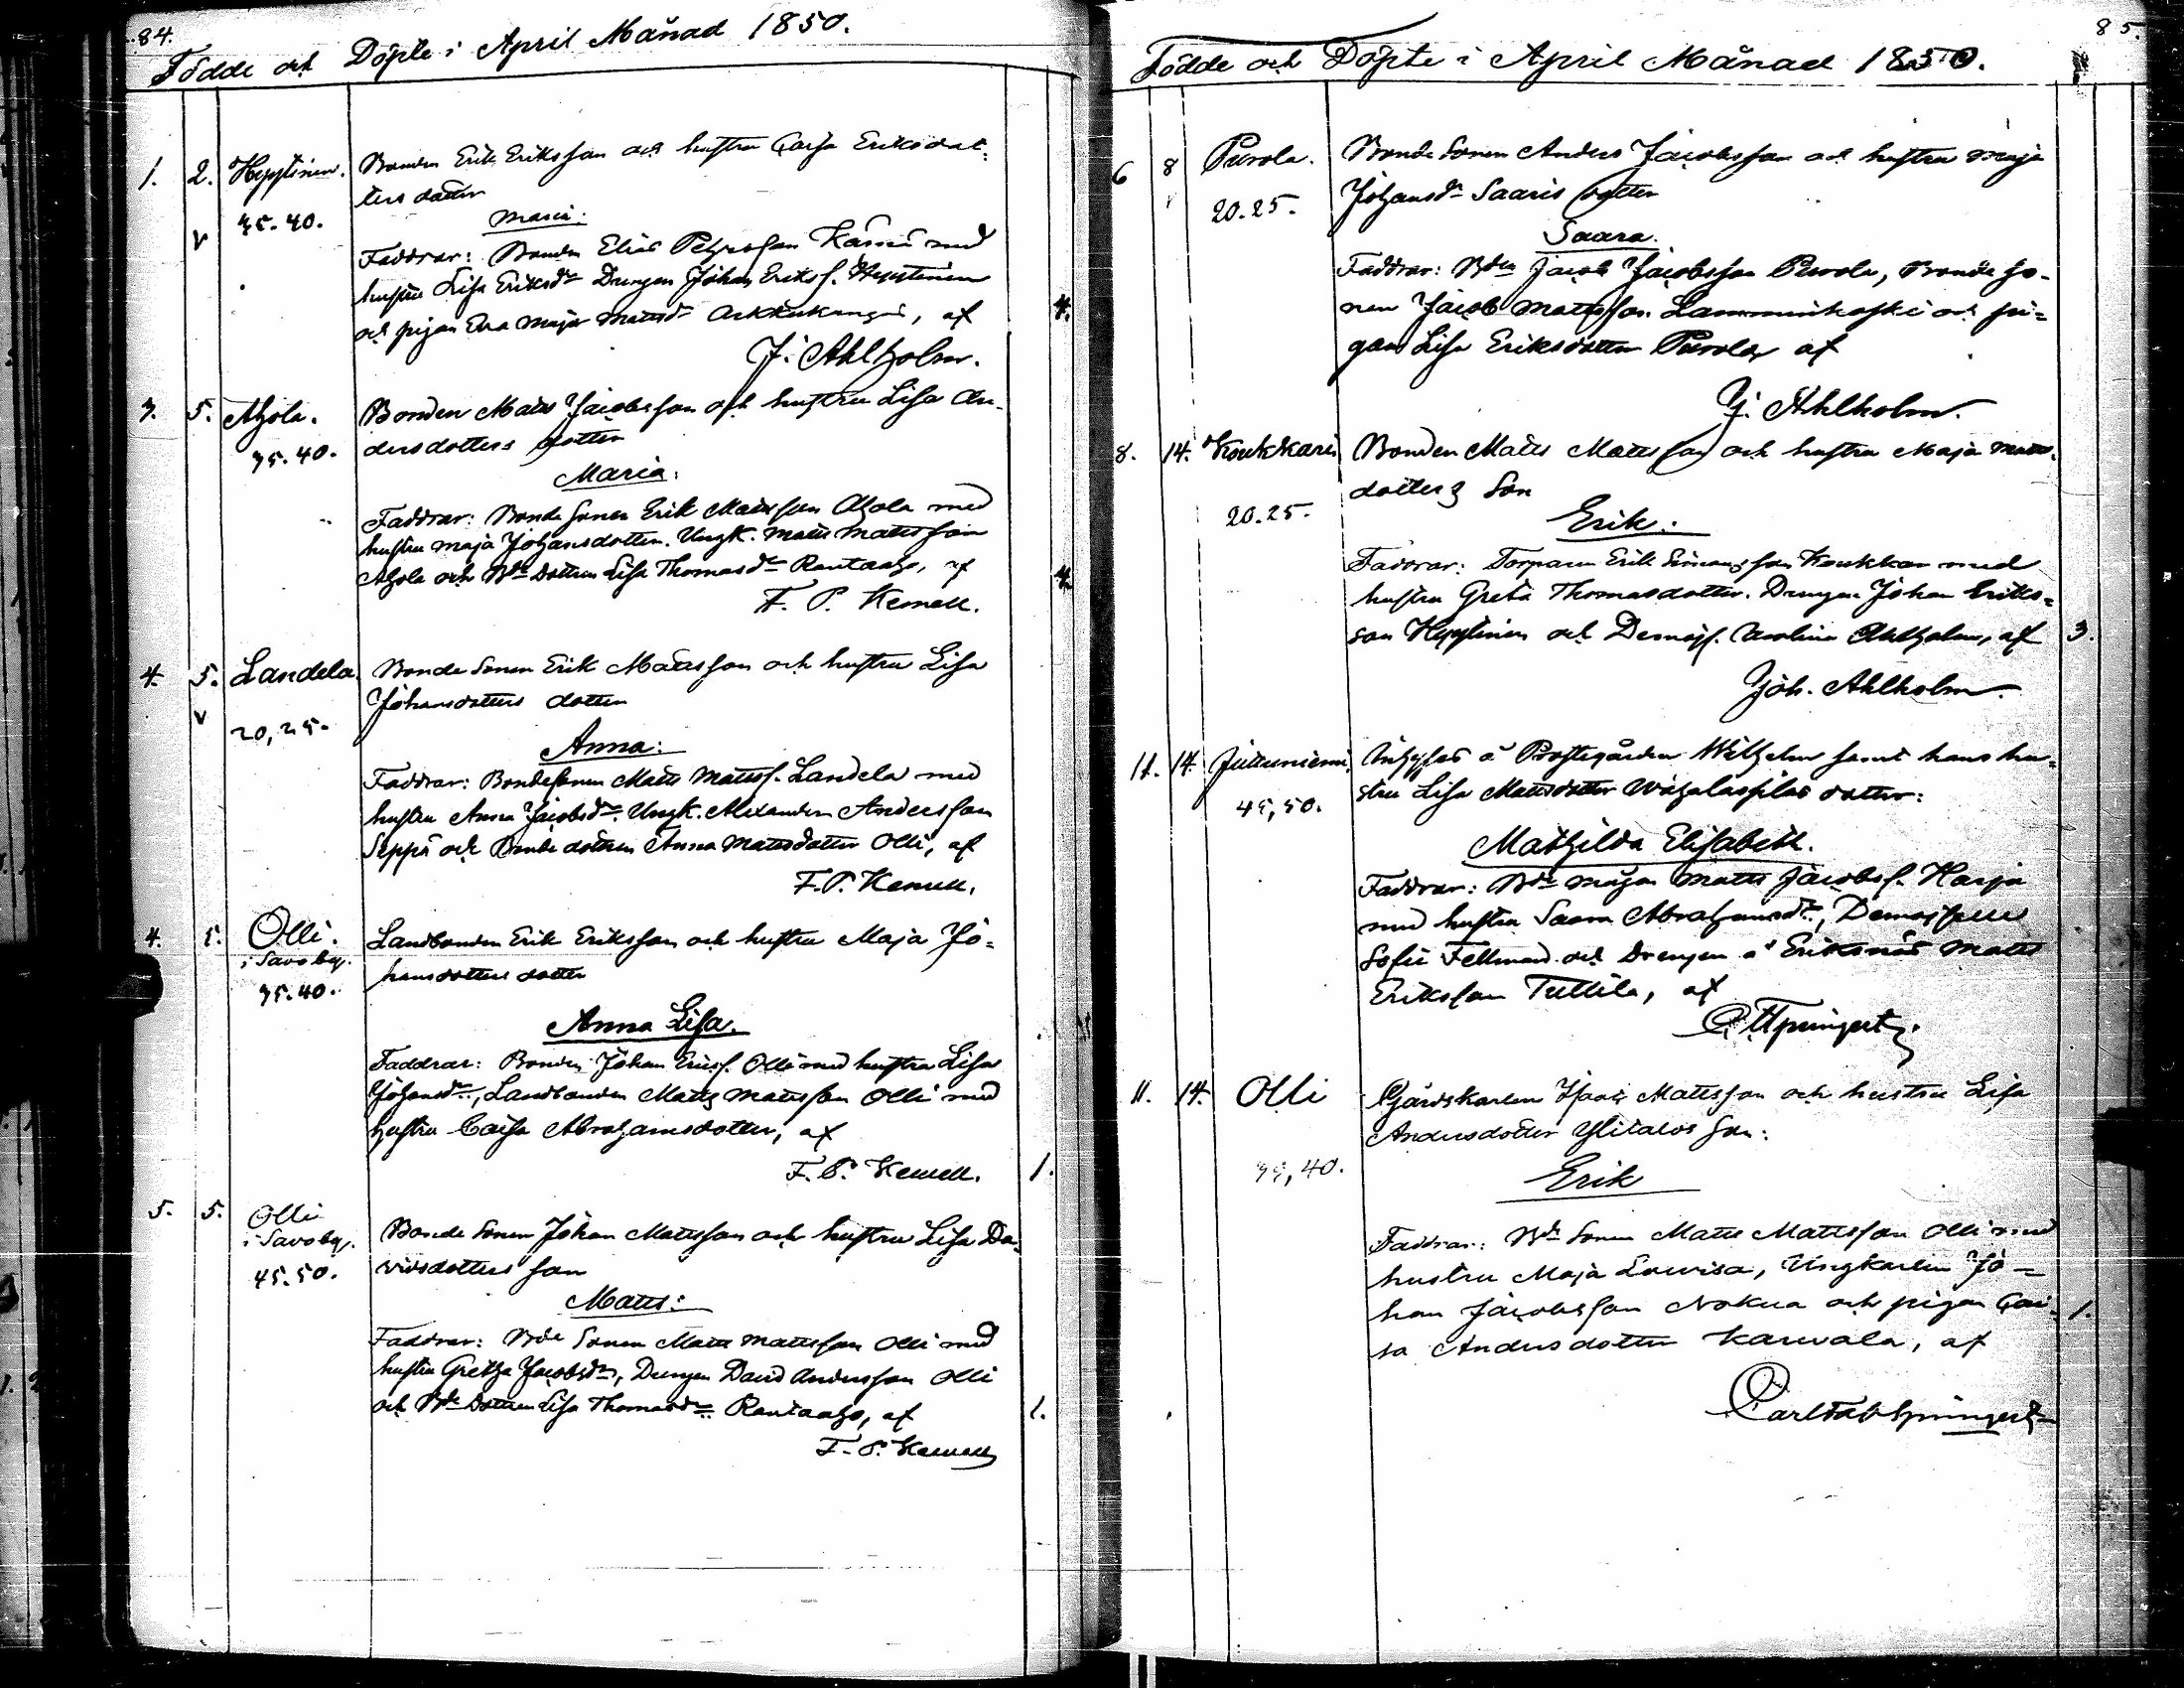 84.
Födde och Döpte i April Månad 1850.
1. 2. Hyytinen. Bonden Erik Eriksson och hustru Caisa Eriksdot-
ters dotter
35. 40.
Maria:
Faddrar: Bonden Elias Petersson med
hustru Lisa Eriksdr Drengen Johan Eriksf. Hyytinen
och pigan Eva Maja Mattsdr af
4.
J. Ahlholm.
3. 5. Ahola. Bonden Matts Jacobsson och hustru Lisa An-
dersdotters dotter
35. 40.
Maria:
Faddrar: Bonde Sonen Erik Mattsson Ahola med
hustru Maja Johansdotter. Ungk. Matts Mattsson
Ahola och Bde Dottren Lisa Thomasdr Rantaaho, af
4.
F. P. Kemell.
4. 5. Landela. Bonde Sonen Erik Mattsson och hustru Lisa
Johansdotters dotter
20, 25.
Anna:
Faddrar: Bondesonen Matts Mattsf. Landela med
hustru Anna Jacobsdr. Ungk. Alexander Andersson
Seppä och Bonde dottren Anna Mattsdotter Olli, af
F. P. Kemell.
4. 5. Olli. Landbonden Erik Eriksson och hustru Maja Jo-
i Savoby. hansdotters dotter
35. 40.
Anna Lisa.
Faddrar: Bonden Johan Ericsf. Olli med hustru Lisa
Johansdr, Landbonden Matts Mattsson Olli med
hustru Caisa Abrahamsdotter, af
F. P. Kemell. 1.
5. 5. Olli
i Savoby. Bonde Sonen Johan Mattsson och hustru Lisa Da-
45. 50. vidsdotters son
Matts:
Faddrar: Bde Sonen Matts Mattsson Olli med
hustru Gretha Jacobsdr, Drengen David Andersson Olli
och Bde Dottren Lisa Thomasdr Rantaaho, af 1.
F. P. Kemell
85.
Födde och Döpte i April Månad 1850.
6 8 Purola. Bonde Sonen Anders Jacobsson och hustru Maja
Johansdr Saaris dotter
20. 25.
Saara.
Faddrar: Bden Jacob Jacobsson Purola, Bonde so-
nen Jacob Mattsson Lamminkoski och pi-
gan Lisa Eriksdotter Purola af
J. Ahlholm.
8. 14. Koukkari Bonden Matts Mattsson och hustru Maja Matts-
dotters Son
20. 25.
Erik:
Faddrar: Torparen Erik Simonsson Koukkari med
hustru Greta Thomasdotter. Drengen Johan Eriks-
son Hyytinen och Demojs. Carolina Ahlholm, af 3.
Joh. Ahlholm.
11. 14. Juttuniemi. Inhyses å Prostgården Wilhelm samt hans hu-
stru Lisa Mattsdotter dotter:
45, 50.
Mathilda Elisabeth.
Faddrar: Bde mågen Matts Jacobsf. Harja
med hustru Saara Abrahamsdr, Demojselle
Sofie Fellman och Drengen å Eriksnäs Matts
Eriksson Tuttila, af
C. F. Springert.
11. 14. Olli Gårdskarlen Isaac Mattsson och hustru Lisa
Andersdotter Ylitalos son:
35, 40.
Erik
Faddrar: Bde Sonen Matts Mattsson Olli med
hustru Maja Lovisa, Ungkarlen Jo-
han Jacobsson Nokua och pigan Cai- 1.
sa Andersdotter Karvala, af
Carl Springert